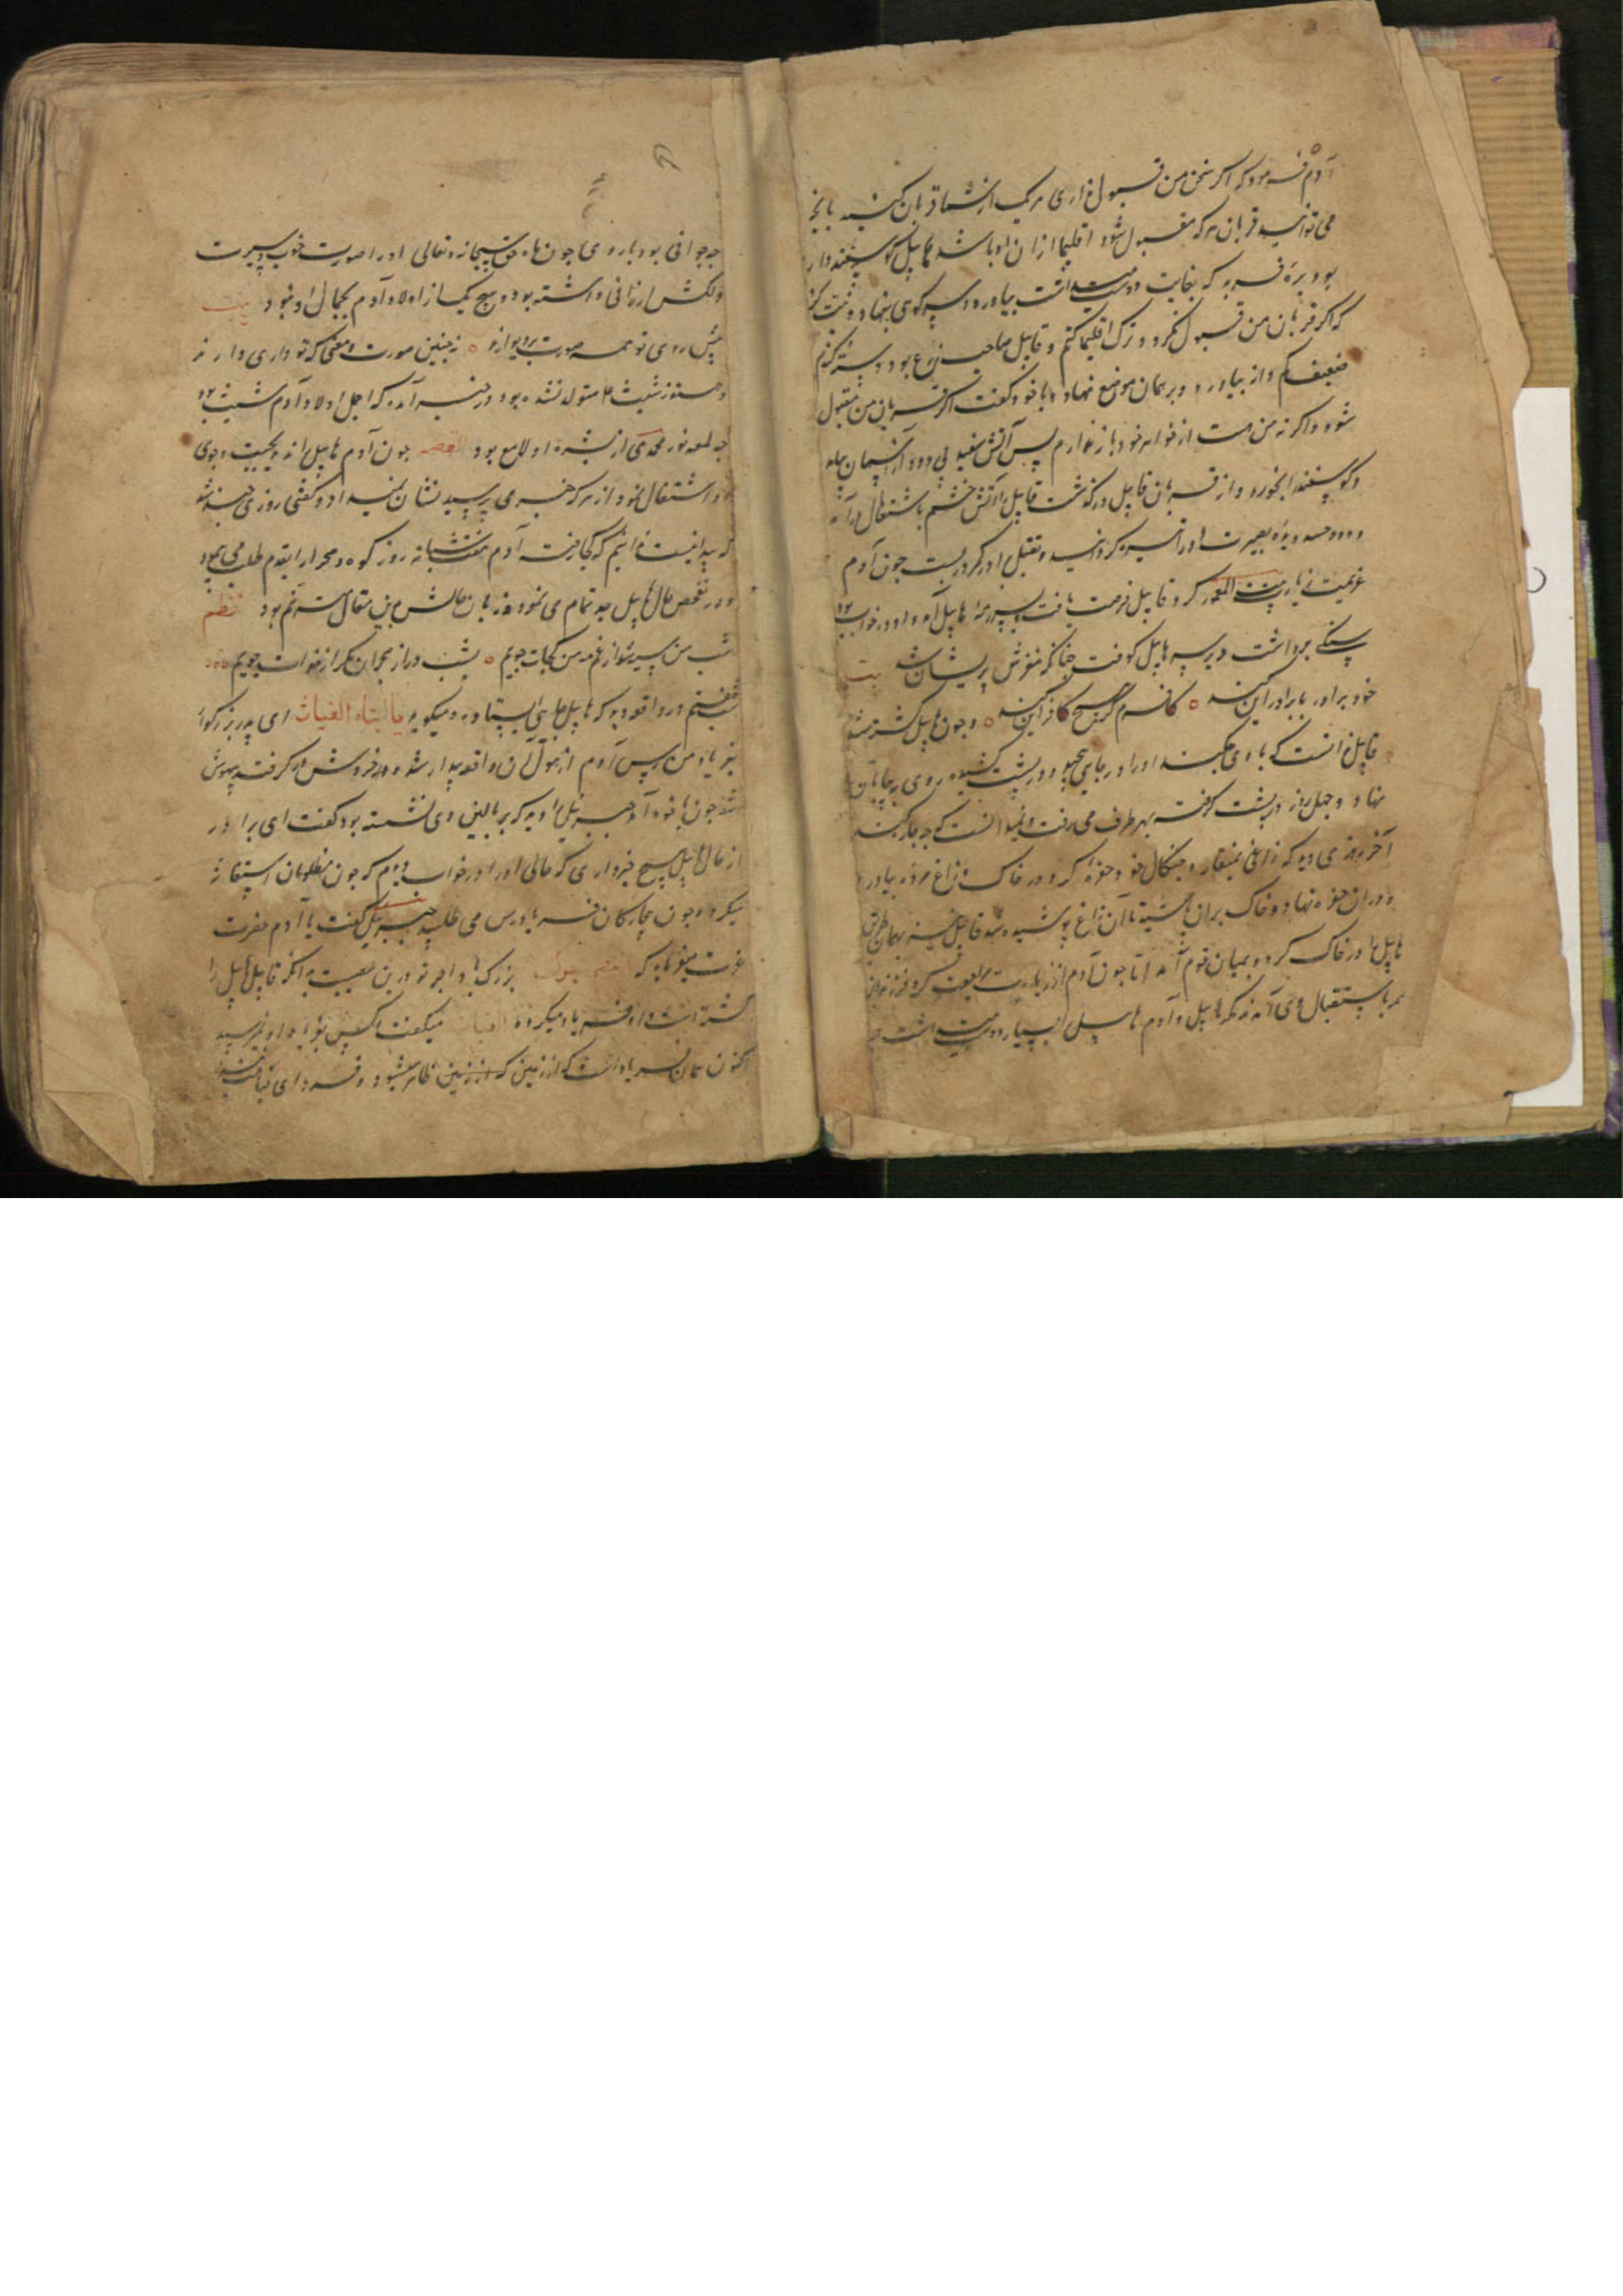 آدم فرمود که اگر سخن من قبول نداری هر یک از شما قربان کنید بانچه
می توانید قربان هر که مقبول شود اقلیما ازان او باشد هابیل گوسپند دار
بود برهٔ فربه که بغایت دوست میداشت بیاورد و بر سر کوهی بنهاد و نیت کرد
که اگر قربان من قبول نکرد و ترک اقلیما کنم و قابیل صاحب زرع بود دسته گندم
ضعیف کم دانه بیاورد و بر همان موضع نهاد و با خود گفت اگر قربان من مقبول
شود و اگر نه من دست از خواهر خود باز ندارم پس آتش سفید بی دود از آسمان بیامد
و گوسپند را بخورد و از قربان قابیل درگذشت قابیل را آتش خشم باشتعال درآمد
و دود حسد دیدهٔ بصیرت او را تیره گردانید و بقتل برادر کمر در بست چون آدم
عزیمت زیارت بیت المعمور کرد قابیل فرصت یافت بر سر رمهٔ هابیل آمد و او در خواب بود
سنگی برداشت و بر سر هابیل کوفت چنانکه مغزش پریشان شد بیت
خود برادر با برادر این کند ○ کافرم گر هیچ کافر این کند ○ و چون هابیل کشته شد
قابیل ندانست که با وی چکند او را در جامه پیچید و در پشت کشیده روی به بیابان
نهاد و چهل روز در پشت گرفته بهر طرف می رفت و نمیدانست که چه چاره کند
آخر روزی دید که زاغی بمنقار و چنگال خود حفره کرد در خاک و زاغ مرده بیاورد
و در ان حفره نهاد و خاک بران پاشید تا آن زاغ پوشیده شد قابیل نیز بهمان طریق
هابیل را در خاک کرد و بمیان قوم آمد اما چون آدم از زیارت مراجعت کرد فرزندان
همه باستقبال وی آمدند مگر هابیل و آدم هابیل را بسیار دوست میداشت
چه جوانی بود با روی چون ماه حق سبحانه و تعالی او را صورت خوب و سیرت
دلکش ارزانی داشته بود و هیچ یک از اولاد آدم بجمال او نبود بیت
پیش روی تو همه صورت بر دیوارند ○ نه چنین صورت و معنی که تو داری دارند
و هنوز شیث ع متولد نشده بود و در خبر آمده که اجمل اولاد آدم شیث بود
چه لمعه نور محمدی از بشره او لامع بود القصه چون آدم هابیل را ندید بجست و جوی
او اشتغال نمود از هر که خبر می پرسید نشان نمیداد و گفتی روزی چند شد
که پیدا نیست ندانیم که کجا رفت آدم هفت شبانه روز کوه و صحرا را بقدم طلب می پیمود
و در تفحص حال هابیل جد تمام می نمود و زبان حالش باین مقال مترنم بود نظم
شب من سیه شد از غم مه من کجات جویم ○ بشب دراز هجران مگر از خدات جویم
شب هفتم در واقعه دید که هابیل بجایی ایستاده و میگوید یا ابتاه الغیاث ای پدر بزرگوار
بفریاد من رس پس آدم از هول آن واقعه بیدار شده و خروش در گرفت و بیهوش
شد چون باخود آمد جبرئیل را دید که بر بالین وی نشسته بود گفت ای برادر
از حال هابیل هیچ خبر داری که حالی او را در خواب دیدم که چون مظلومان استغاثه
میکرد و چون بیچارگان فریادرس می طلبید جبرئیل گفت یا آدم حضرت
عزت میفرماید که بزرگ باد اجر تو درین مصیبت بدانکه قابیل هابیل را
کشته است و او فریاد میکرد و الغیاث میگفت و کس بفریاد او نمیرسید
اکنون همان فریاد است که از زمین که از زمین ظاهر میشود و فردای قیامت